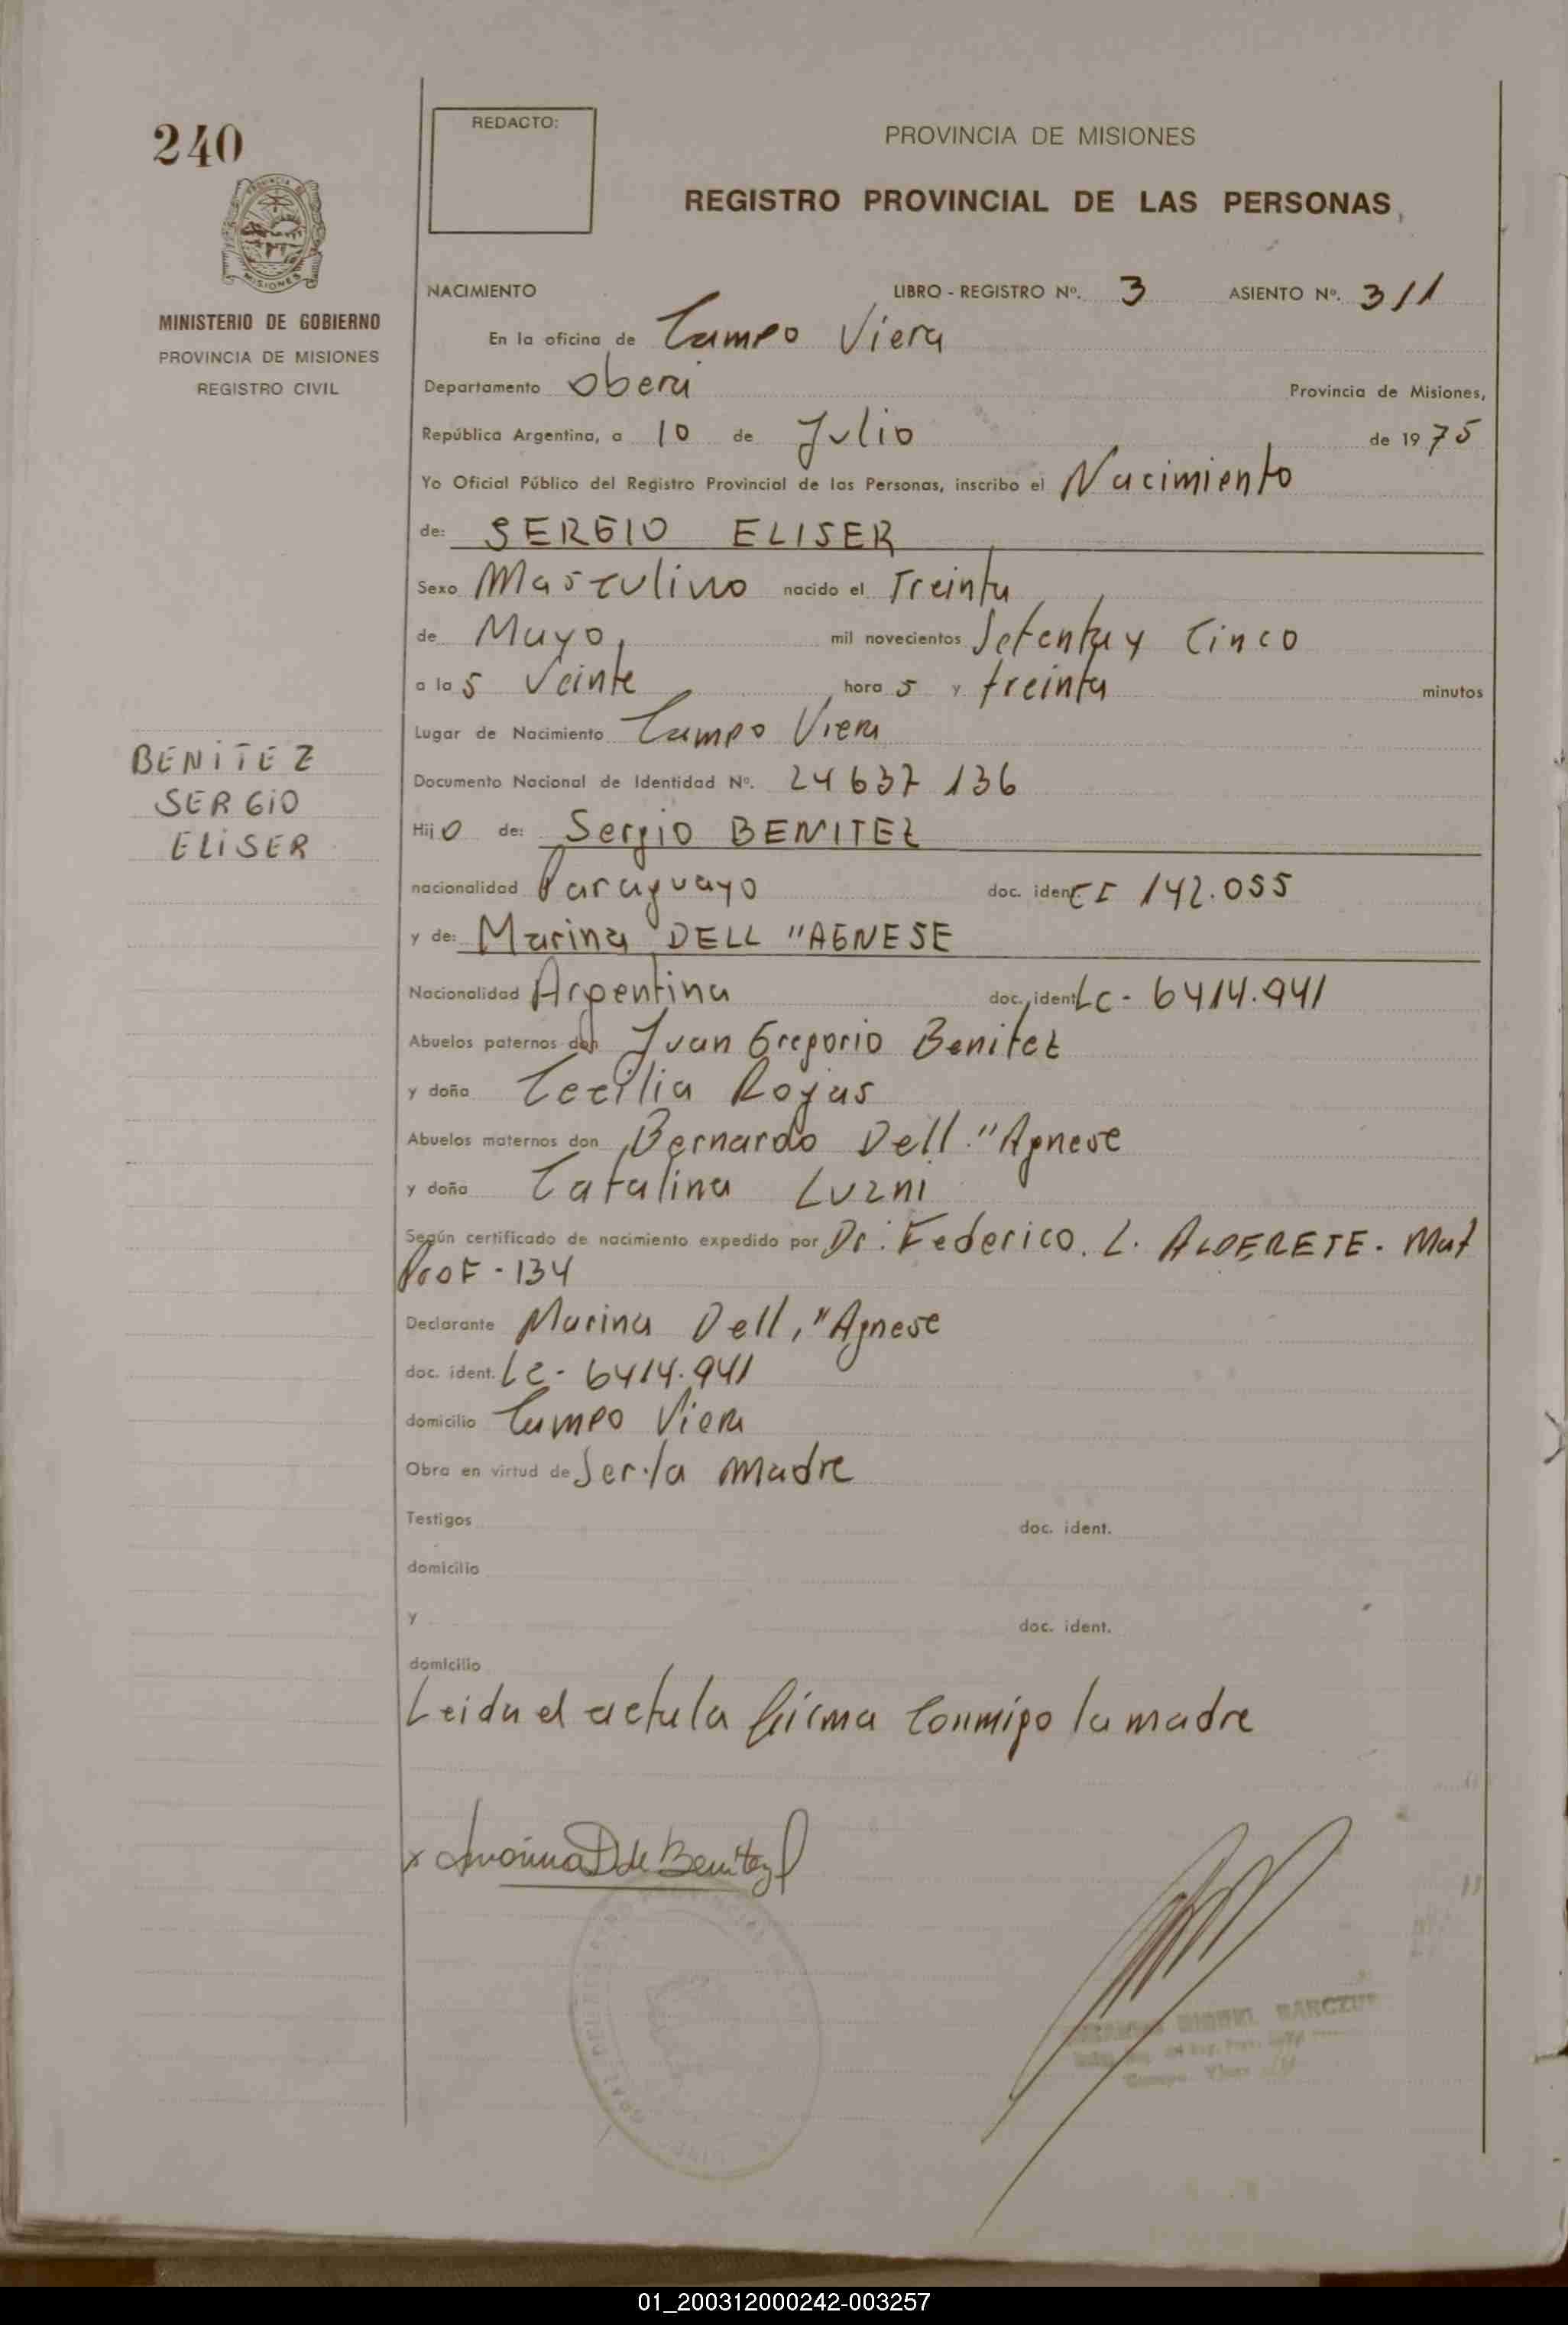 240
REDACTO:
PROVINCIA DE MISIONES
REGISTRO PROVINCIAL DE LAS PERSONAS
MISIONES
MINISTERIO DE GOBIERNO
PROVINCIA DE MISIONES
REGISTRO CIVIL
NACIMIENTO LIBRO - REGISTRO Nº. 3 ASIENTO Nº. 311
En la oficina de Campo Viera
Departamento Oberá Provincia de Misiones,
República Argentina, a 10 de Julio de 1975
Yo Oficial Público del Registro Provincial de las Personas, inscribo el Nacimiento
de: SERGIO ELISER
Sexo Masculino nacido el Treinta
de Mayo, mil novecientos Setenta y Cinco
a las Veinte horas y treinta minutos
Lugar de Nacimiento Campo Viera
BENITEZ
SERGIO
ELISER
Documento Nacional de Identidad Nº. 24637136
Hijo de: Sergio BENITEZ
nacionalidad Paraguayo doc. ident CI 142.055
y de: Marina DELL "AGNESE
Nacionalidad Argentina doc. ident LC - 6414.941
Abuelos paternos don Juan Gregorio Benitez
y doña Cecilia Rojas
Abuelos maternos don Bernardo Dell "Agnese
y doña Catalina Luzni
Según certificado de nacimiento expedido por Dr. Federico. L. ALDERETE. Mat
Prof - 134
Declarante Marina Dell, "Agnese
doc. ident. LC - 6414.941
domicilio Campo Viera
Obra en virtud de Ser la madre
Testigos doc. ident.
domicilio
y doc. ident.
domicilio
Leida el acta la firma Conmigo la madre
x Marina D de Benitez
01_200312000242-003257